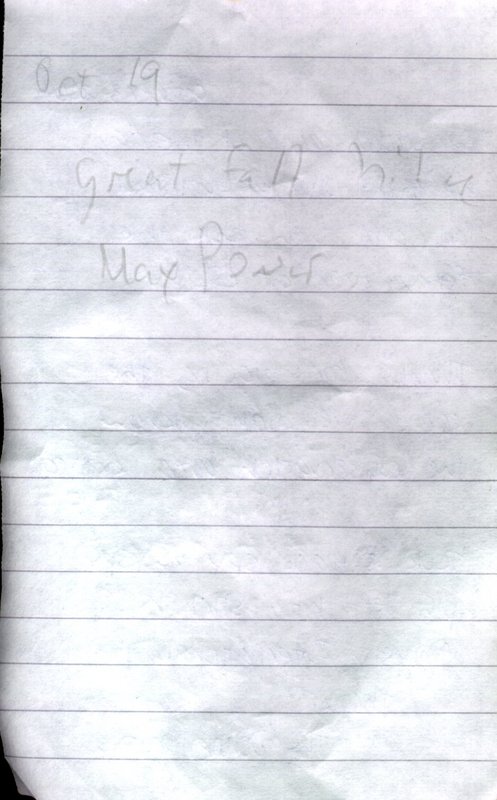 Oct 19
Great fall hike
Max Power